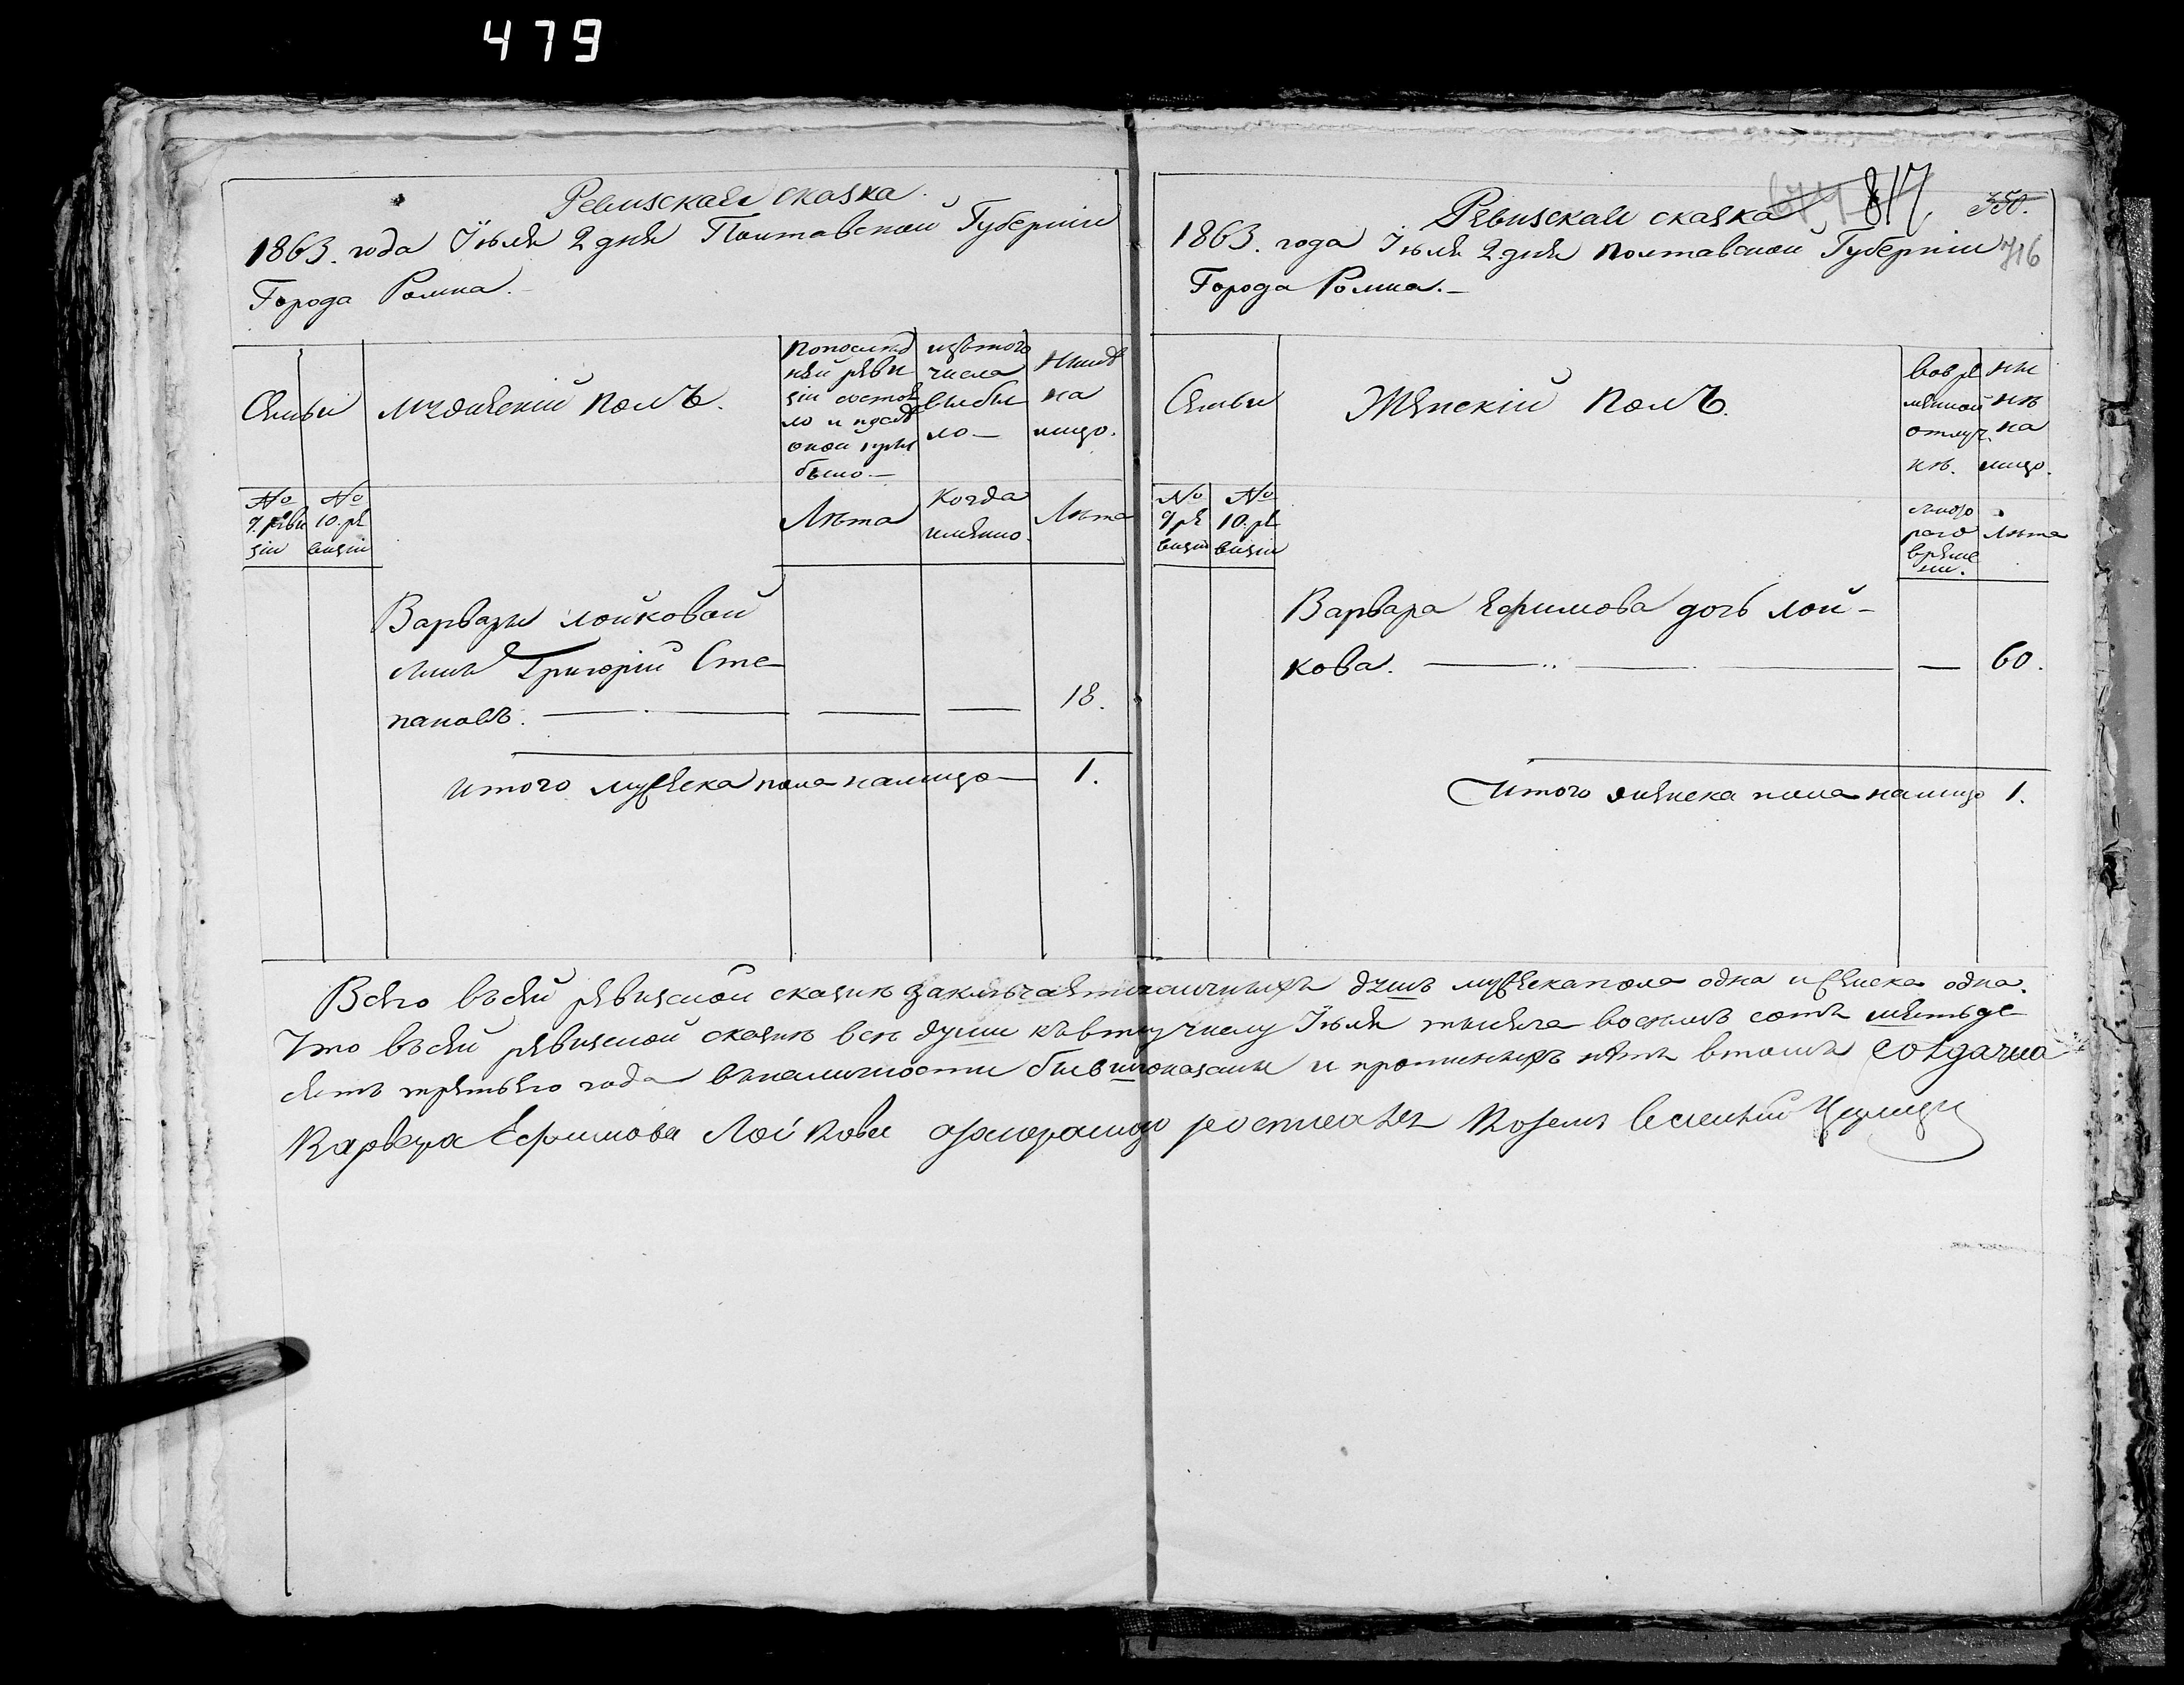 479
Ревизская сказка.
1863. года Іюля 2 дня Полтавской Губерніи
Города Ромна.-
Семьи
Мужескій полъ.
По послѣд
ней реви
зіи состоя
ло и послѣ
оной при
было.-
изъ того
числа
выбы
ло-
Нынѣ
на
лицо.
№
9. реви
зіи
№
10. ре
визіи
Лѣта
Когда
имянно.
Лѣта
Варвары Лойковой
сынъ Григорій Сте
пановъ.
18.
Итого мужеска пола налицо
1.
817
350.
716
Ревизская сказка
1863. года Іюля 2 дня Полтавской Губерніи
Города Ромна.-
Семьи
Женскій полъ.
Во вре
менной
отлуч.
кѣ.
ны
нѣ
на
лицо.
№
9 ре
визіи
№
10. ре
визіи
с кото
раго
време
ни.
Лѣта
Варвара Ефимова дочь Лой-
кова.
60.
Итого женска пола налицо
1.
Всего въ сей ревизской сказкѣ заключается наличныхъ душъ мужеска пола одна и женска одна.
Что въ сей ревизской сказкѣ всѣ души къ числу Іюля тысяча восемь сотъ шестьде
сятъ третьего года въ наличности бывши показаны и прописныхъ нѣтъ в томъ солдатка
Варвара Ефимова Лойкова